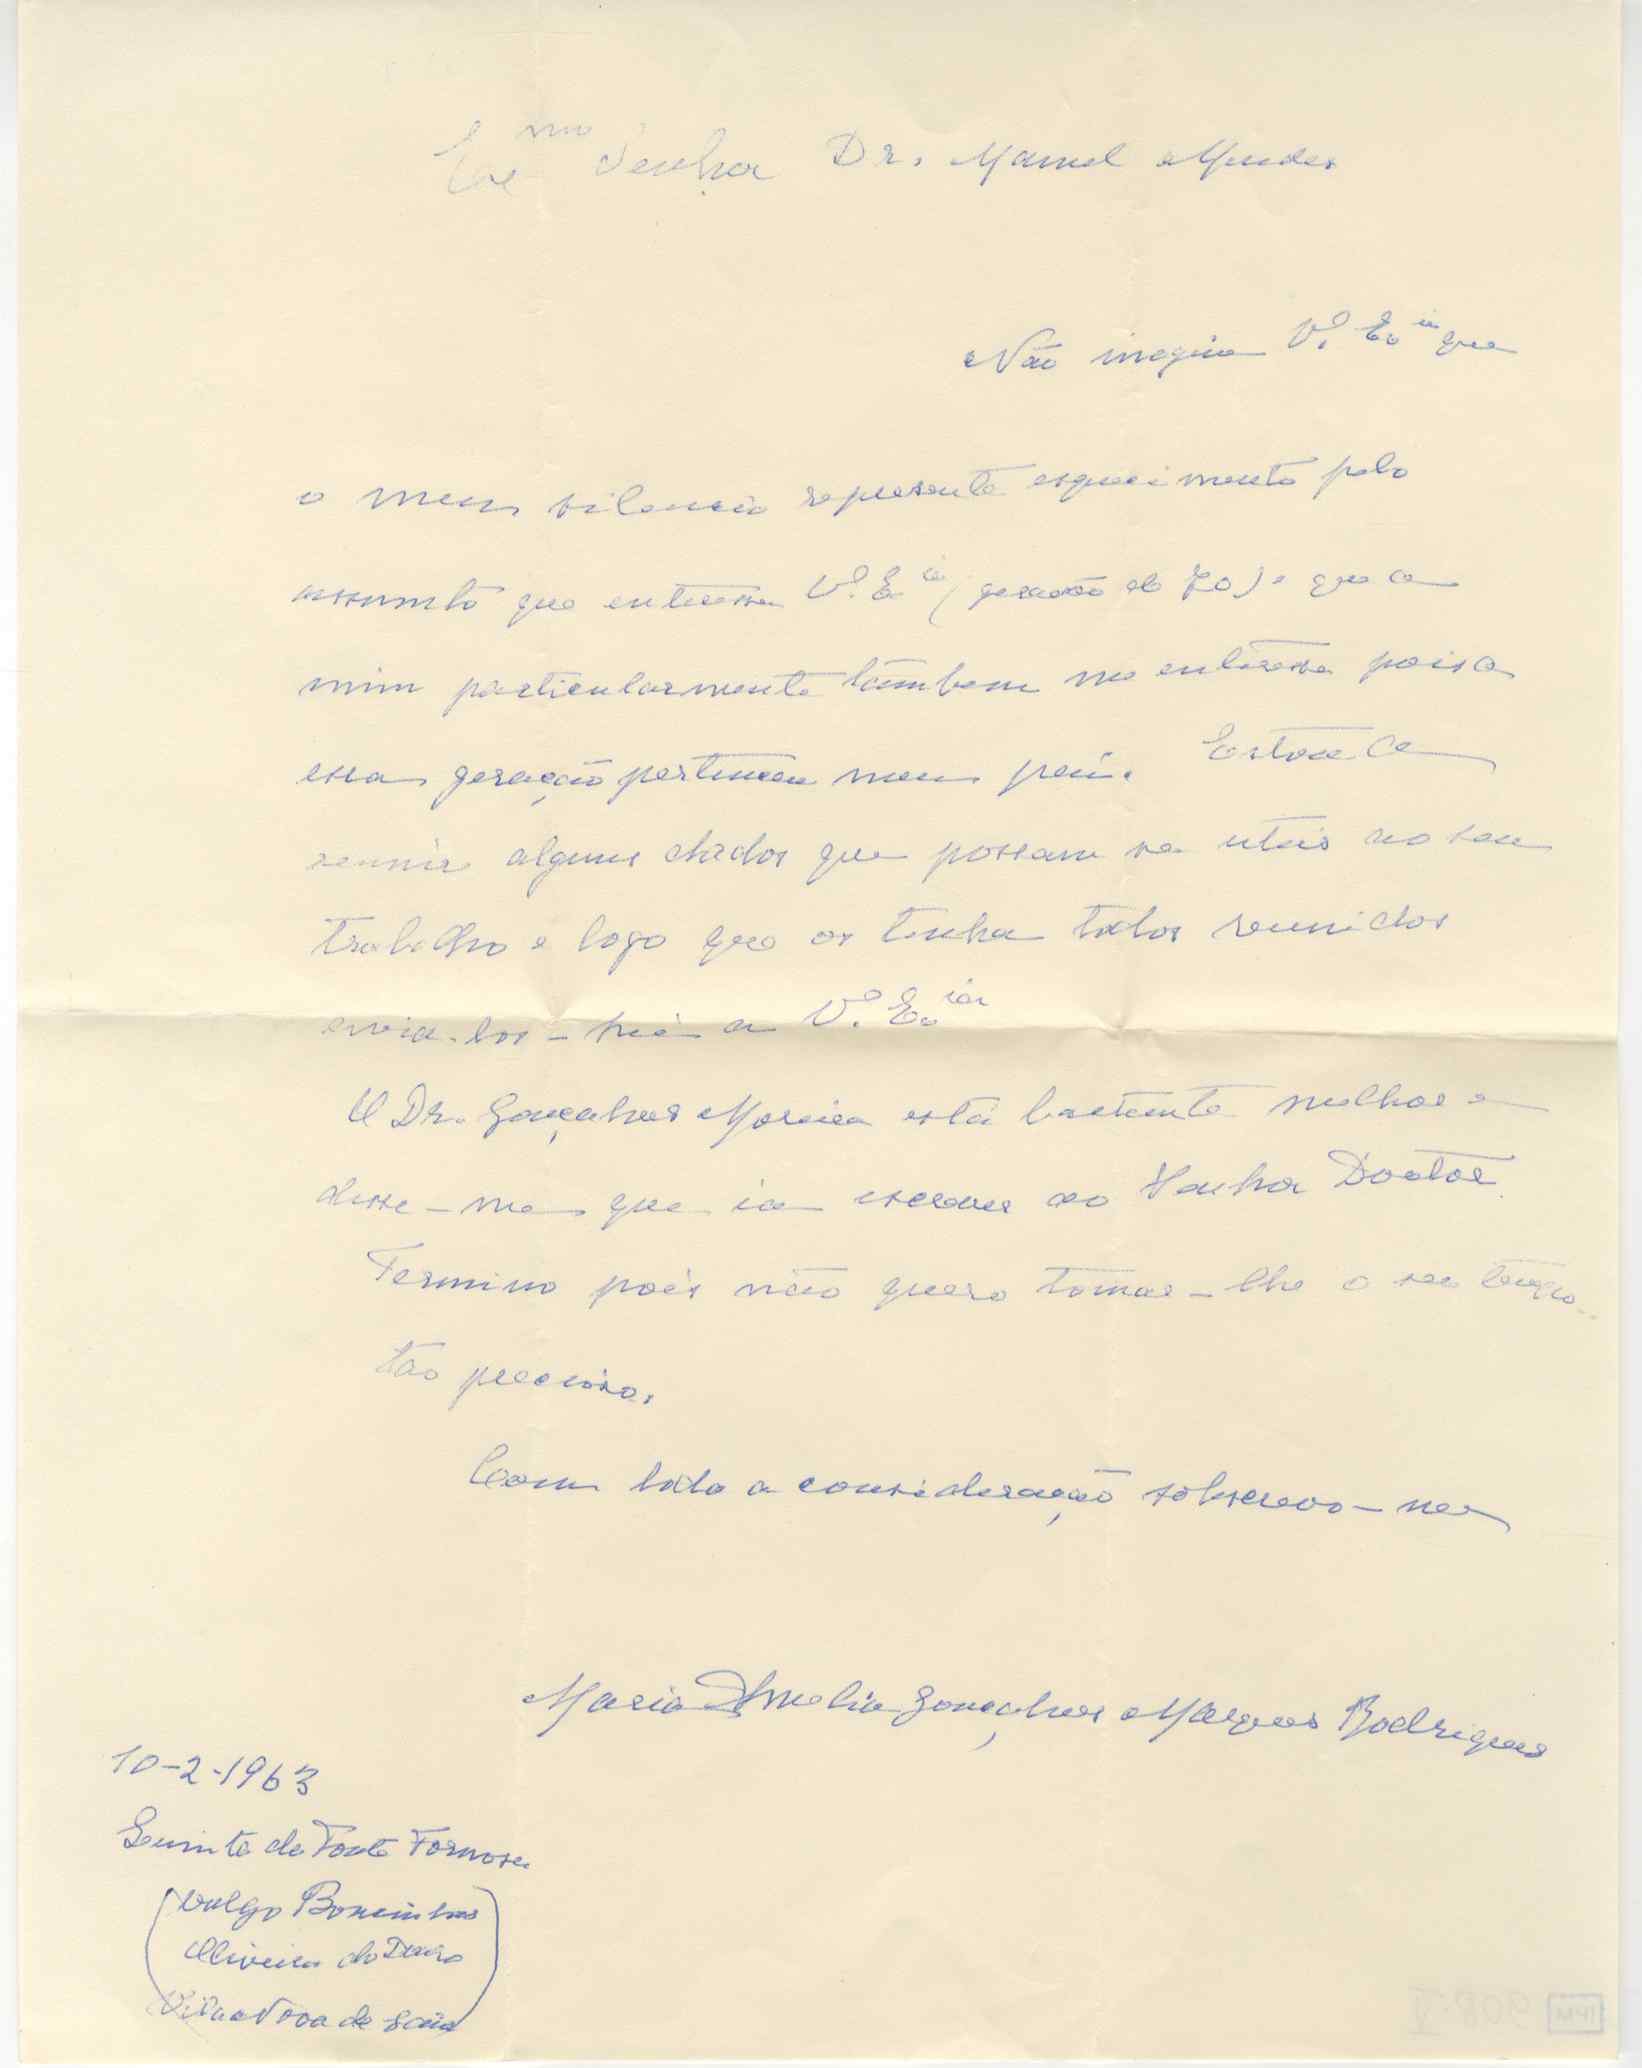 Exmo Senhor Dr. Manuel Mendes
Não imagine V.ª Ex.cia que
o meu silencio represente esquecimento pelo
assunto que enteressa V.ª Ex.cia (geração de 70) e que a
mim particularmente tâmbem me enteressa pois a
essa geração pertenceu meu pai. Estou a
reunir alguns dados que possam ser uteis ao seu
trabalho e logo que os tenha todos reunidos
envia-los-hei a V.ª Ex.cia
O Dr. Gonçalves Moreira está bastante melhor e
disse-me que ia escrever ao Senhor Doutor.
Termino pois não quero tomar-lhe o seu tempo
tão precioso.
Com toda a consideração sobscrevo-me
Maria Amelia Gonçalves Marques Rodrigues
10-2-1963
Quinta da Fonte Formosa
(Vulgo Boneinhos
Oliveira do Douro
Vila Nova de Gaia)